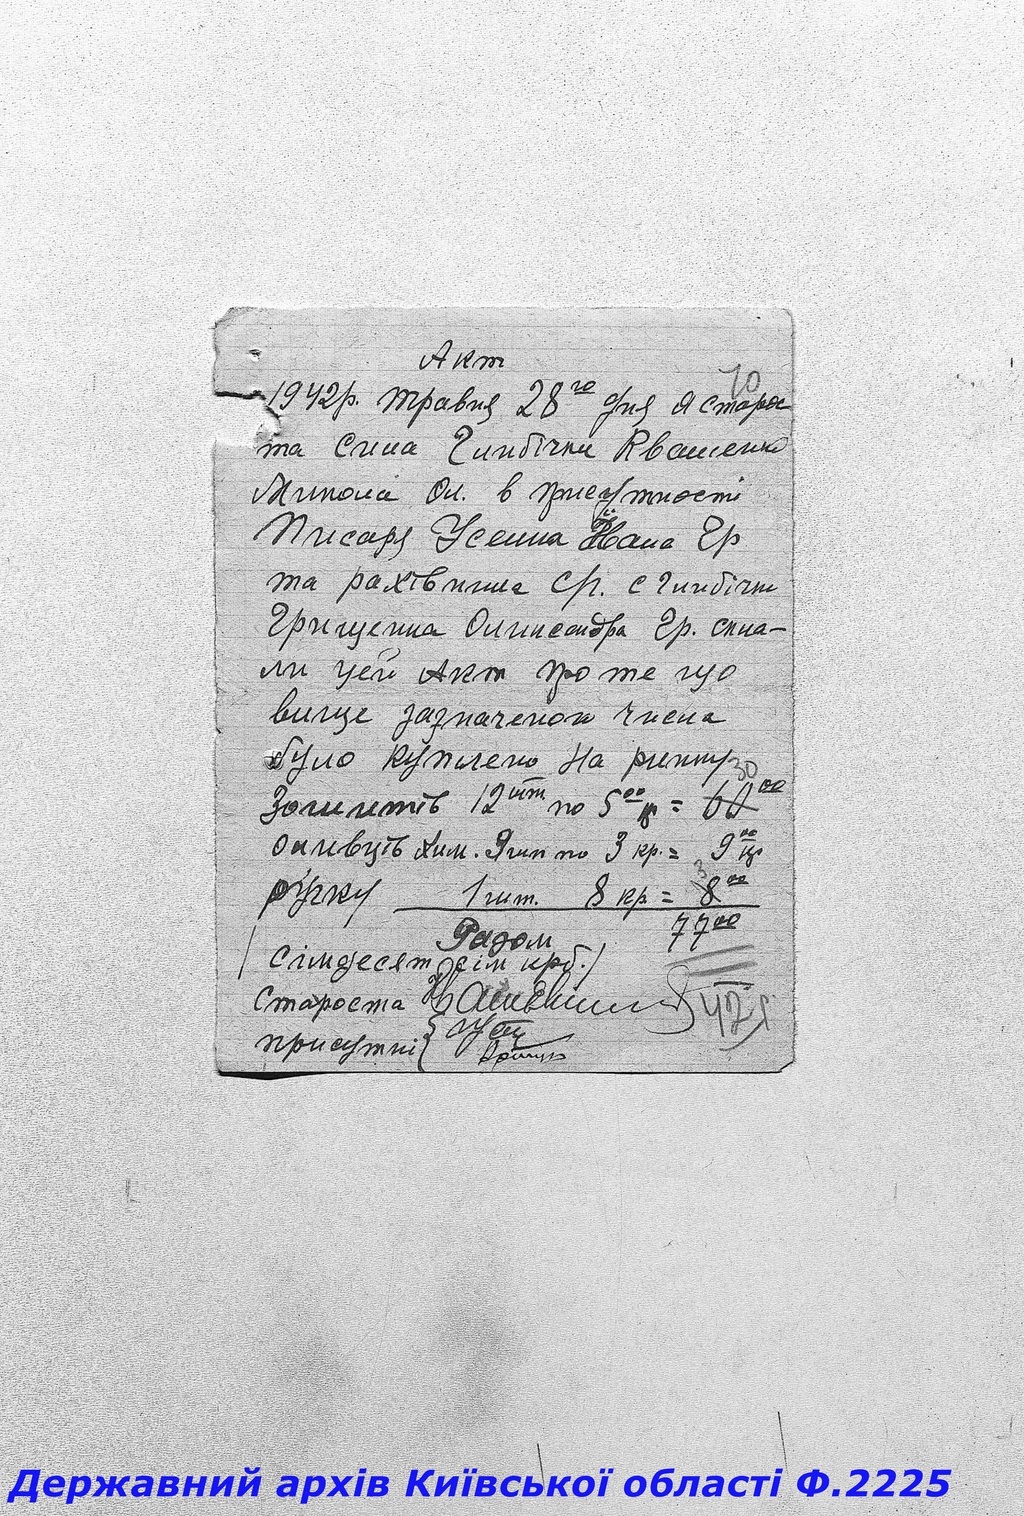 Акт
70
1942р. травня 28го дня я старос
та села Глибічки Квашенко
Микола Ол. в присутності
Писаря Усенка Івана Гр
та рахівника ср. с Глибічки
Грищенка Олександра Гр. скла-
ли цей Акт про те що
вище зазначеного числа
було куплено на ринку
30
Зошитів 12 шт. по 5 00 кр = 60 00
оливців хим. 9 шт по 3 кр. = 9 00 кр
3
ручку 1 шт. 8 кр = 8 00
Разом 77 00
/ сімдесят сім крб. /
Староста
42
присутні {
Державний архів Київської області Ф.2225